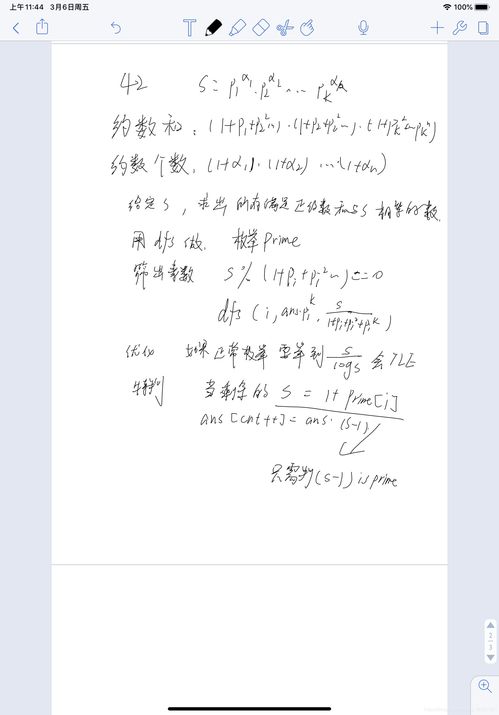 上午11:44 3月6日周五
100%
42 S = p₁^α₁ · p₂^α₂ ... p_k^α_k
约数和: (1+p₁+p₁²~) · (1+p₂+p₂²~) · (1+p_k²~p_kⁿ)
约数个数: (1+α₁) · (1+α₂) ... (1+αn)
给定S, 求出所有满足正约数和与S相等的数.
用dfs做. 枚举Prime
筛出素数 S%(1+pᵢ+pᵢ²~)==0
dfs(i, ans·pᵢ^k, S/(1+pᵢ+pᵢ²+pᵢ^k))
优化 如果正常枚举 要举到 S/logS 会TLE
特判 当剩余的 S = 1+Prime[i]
ans[cnt++] = ans·(S-1)
只需判(S-1) is prime
2
3